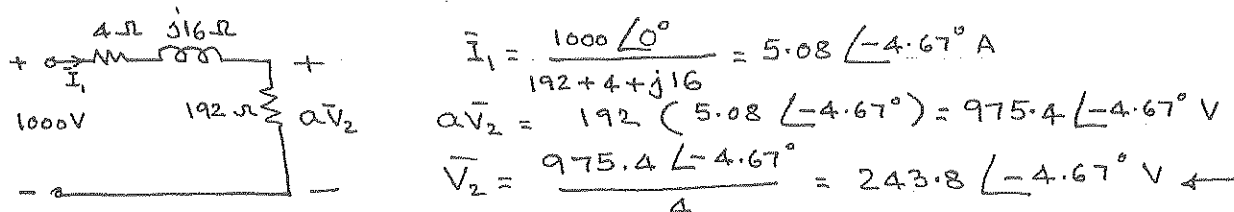 4Ω j16Ω
+ Ī₁ +
1000V 192Ω aV̄₂
- -
Ī₁ = 1000 ∠0° / 192+4+j16 = 5.08 ∠-4.67° A
aV̄₂ = 192 (5.08 ∠-4.67°) = 975.4 ∠-4.67° V
V̄₂ = 975.4 ∠-4.67° / 4 = 243.8 ∠-4.67° V ←